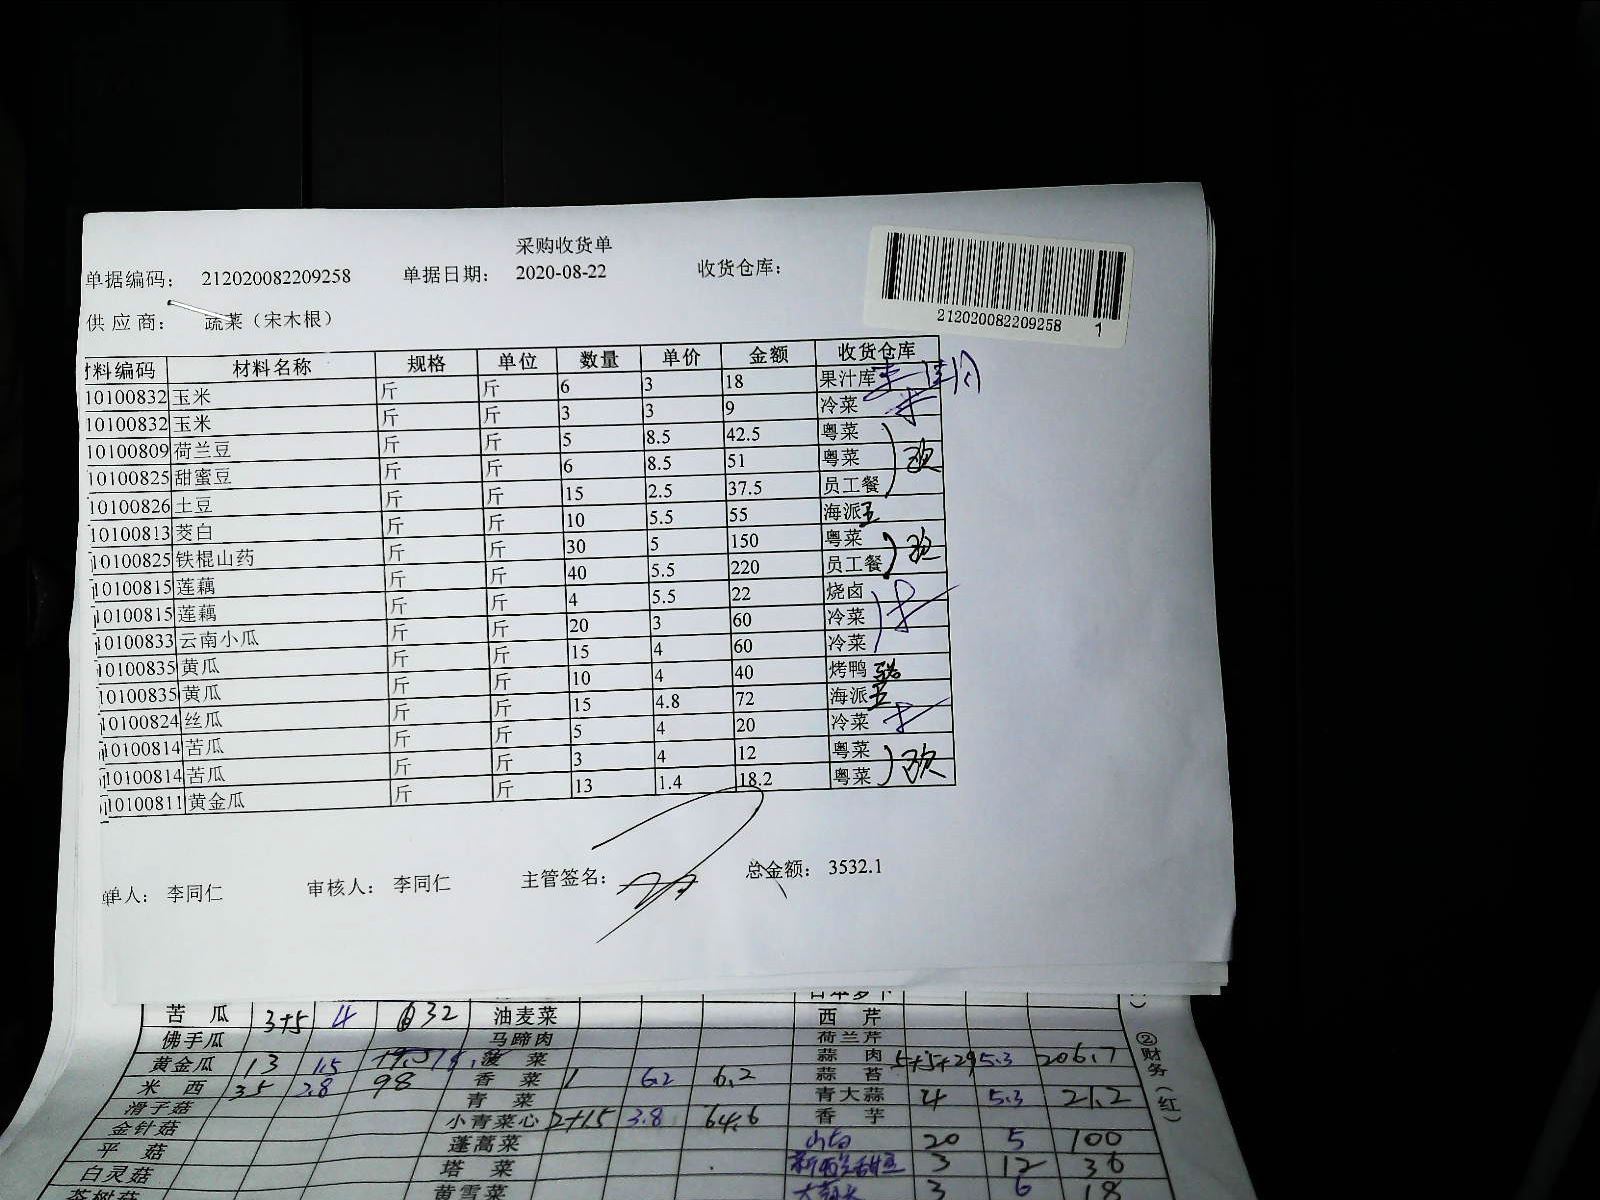 采购收货单
单据编码： 212020082209258 单据日期： 2020-08-22 收货仓库：
212020082209258 1
供应商： 蔬菜（宋木根）
材料编码 材料名称 规格 单位 数量 单价 金额 收货仓库
10100832 玉米 斤 斤 6 3 18 果汁库
10100832 玉米 斤 斤 3 3 9 冷菜
10100809 荷兰豆 斤 斤 5 8.5 42.5 粤菜
10100825 甜蜜豆 斤 斤 6 8.5 51 粤菜
10100826 土豆 斤 斤 15 2.5 37.5 员工餐
10100813 茭白 斤 斤 10 5.5 55 海派
10100825 铁棍山药 斤 斤 30 5 150 粤菜
10100815 莲藕 斤 斤 40 5.5 220 员工餐
10100815 莲藕 斤 斤 4 5.5 22 烧卤
10100833 云南小瓜 斤 斤 20 3 60 冷菜
10100835 黄瓜 斤 斤 15 4 60 冷菜
10100835 黄瓜 斤 斤 10 4 40 烤鸭
10100824 丝瓜 斤 斤 15 4.8 72 海派
10100814 苦瓜 斤 斤 5 4 20 冷菜
10100814 苦瓜 斤 斤 3 4 12 粤菜
10100811 黄金瓜 斤 斤 13 1.4 18.2 粤菜
单人： 李同仁 审核人： 李同仁 主管签名： 总金额： 3532.1
苦瓜 3+5 4 32 油麦菜 西芹
佛手瓜 马蹄肉 荷兰芹
黄金瓜 13 1.5 菠菜 蒜肉 5+5+29 5.3 206.7
米西 35 2.8 98 香菜 1 6.2 6.2 蒜苔
滑子菇 青菜 青大蒜 4 5.3 21.2
金针菇 小青菜心 2+15 3.8 64.6 香芋
平菇 蓬蒿菜 20 5 100
白灵菇 塔菜 3 12 36
茶树菇 黄雪菜 3 6 18
②财务（红）